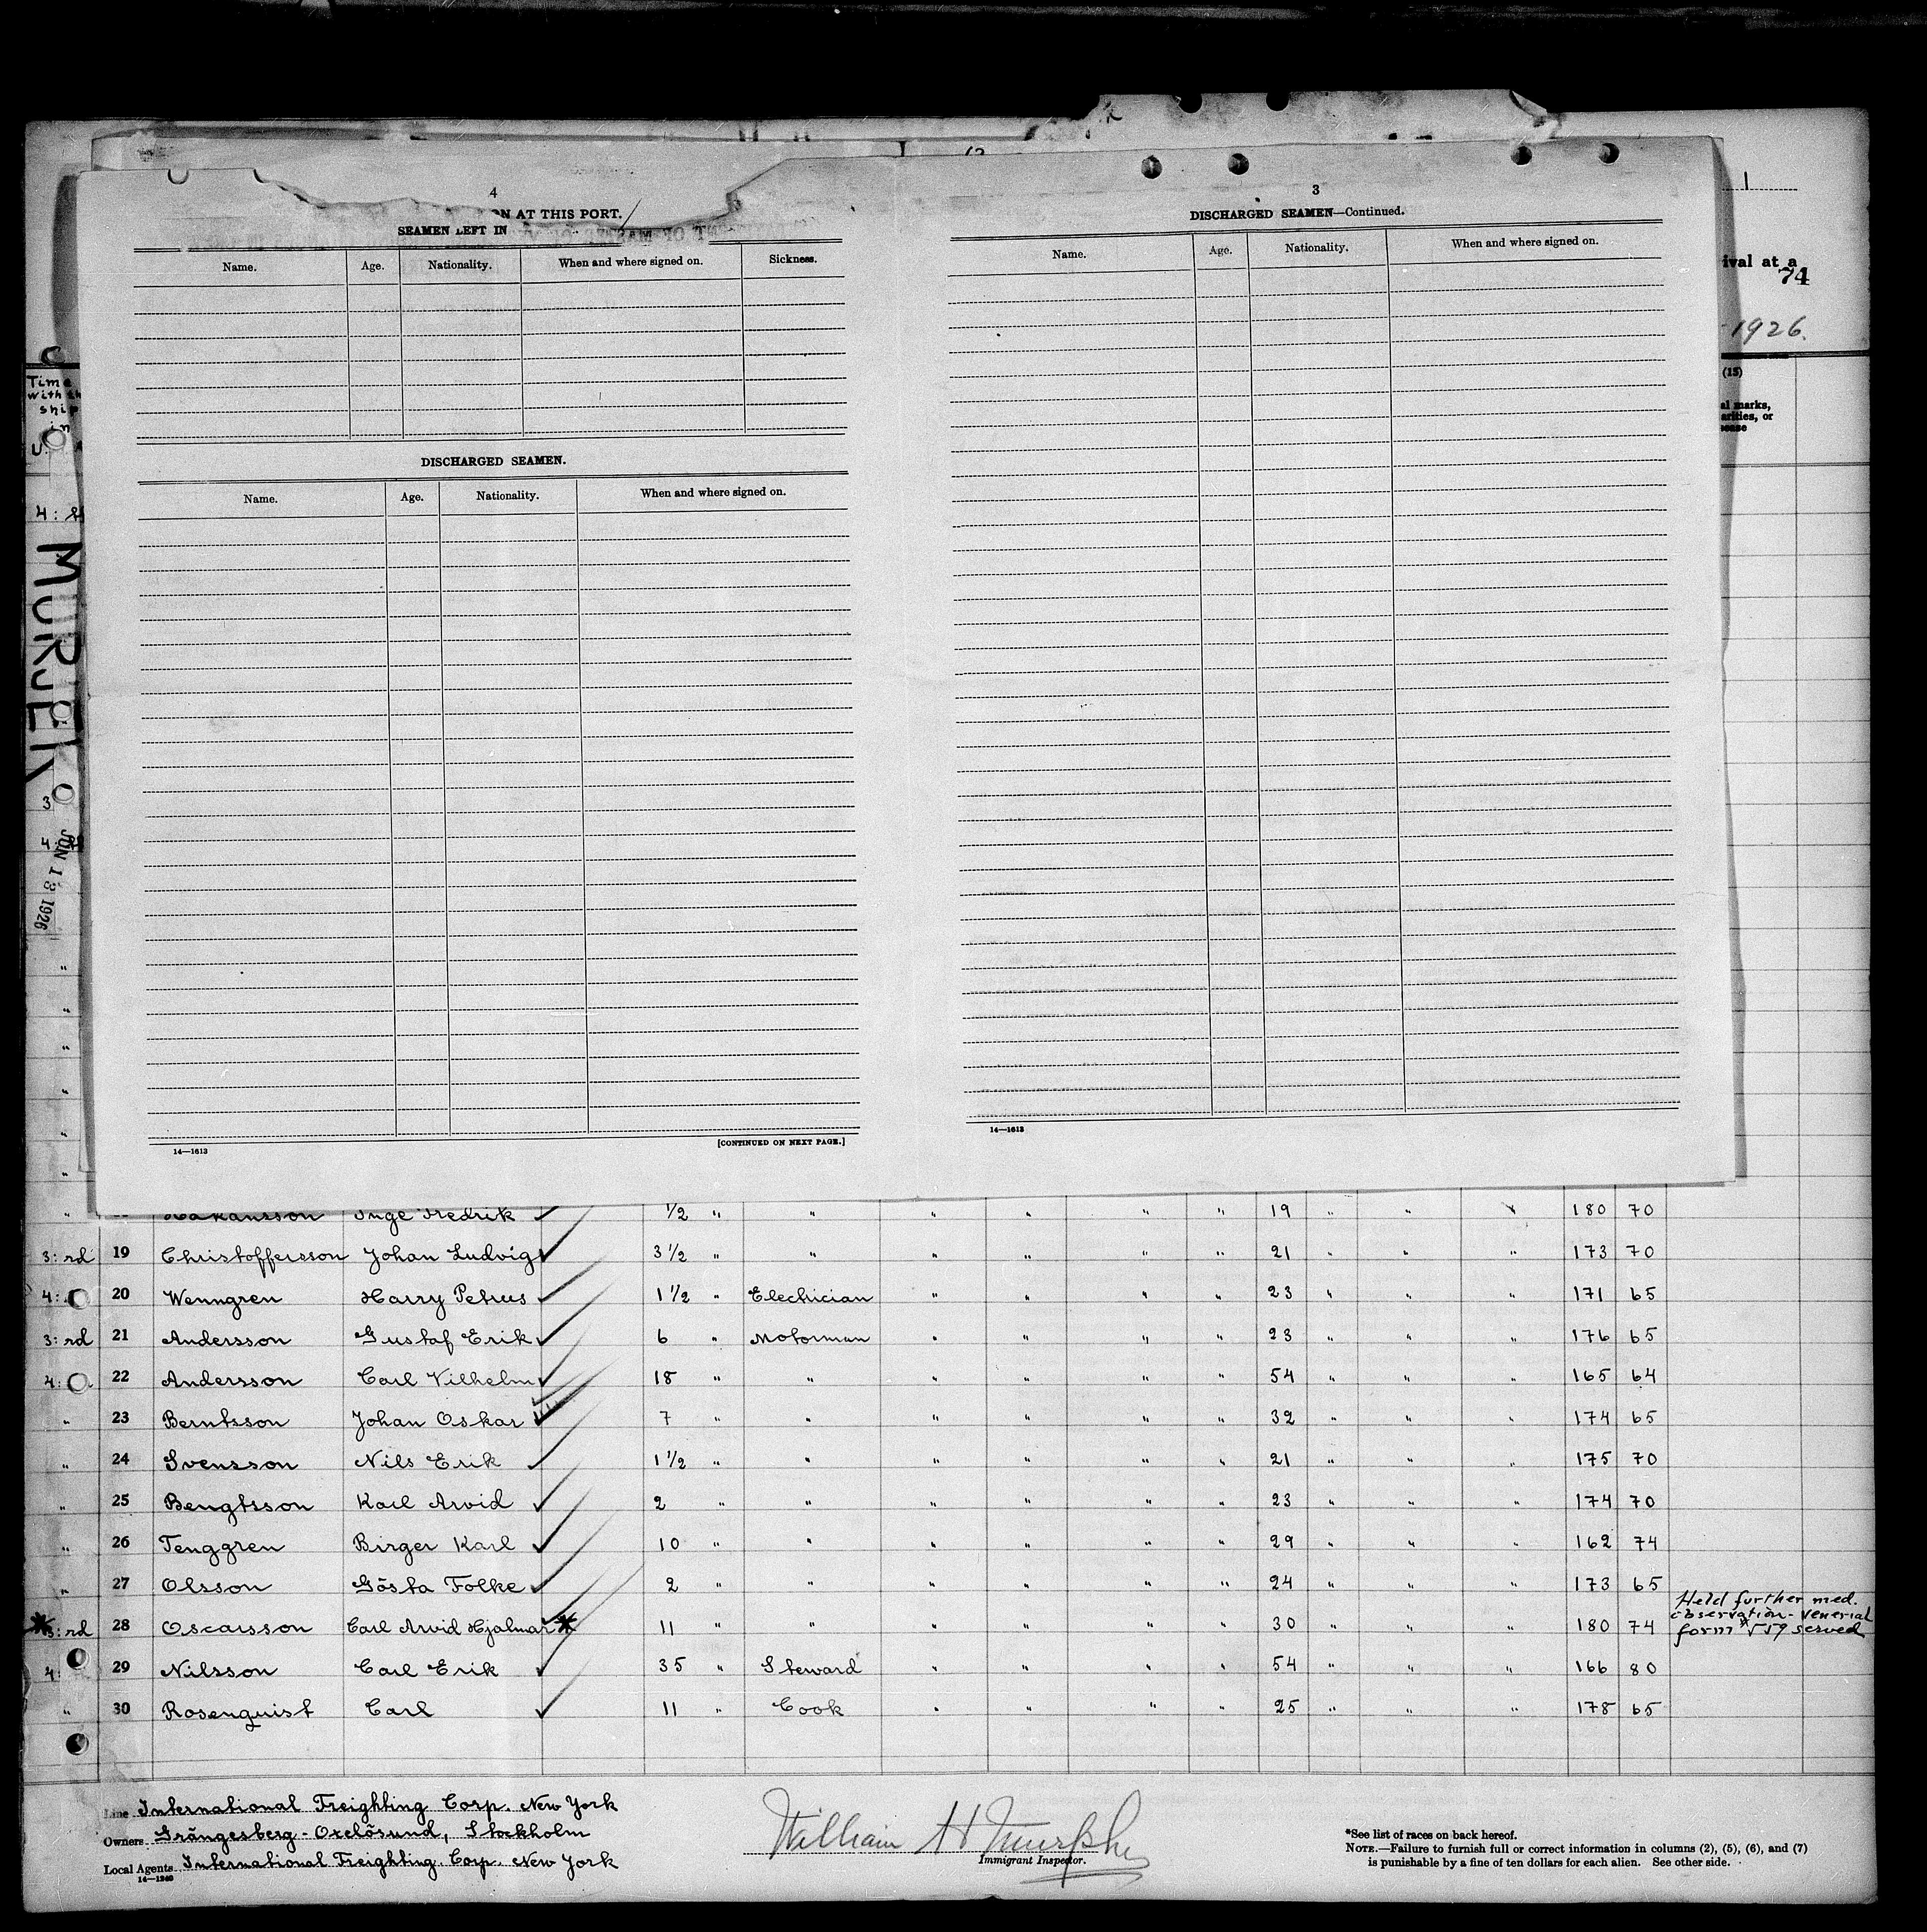 4
ON AT THIS PORT.
SEAMEN LEFT IN
Name. Age. Nationality. When and where signed on. Sickness.
DISCHARGED SEAMEN.
Name. Age. Nationality. When and where signed on.
14—1613 [CONTINUED ON NEXT PAGE.]
3
DISCHARGED SEAMEN—Continued.
Name. Age. Nationality. When and where signed on.
14—1613
ival at a
74
1926.
(15)
al marks,
arities, or
sease
Time
with th
ship
in
U.
4:
MURJEK
3
4:
JUN 13 1926
" Håkansson Inge Fredrik 1/2 " " " " " " 19 " " " 180 70
3:rd 19 Christoffersson Johan Ludvig 3 1/2 " " " " " " 21 " " " 173 70
4: 20 Wenngren Harry Petrus 1 1/2 " Electrician " " " " 23 " " " 171 65
3:rd 21 Andersson Gustaf Erik 6 " Motorman " " " " 23 " " " 176 65
4: 22 Andersson Carl Vilhelm 18 " " " " " " 54 " " " 165 64
" 23 Berntsson Johan Oskar 7 " " " " " " 32 " " " 174 65
" 24 Svensson Nils Erik 1 1/2 " " " " " " 21 " " " 175 70
" 25 Bengtsson Karl Arvid 2 " " " " " " 23 " " " 174 70
" 26 Tenggren Birger Karl 10 " " " " " " 29 " " " 162 74
" 27 Olsson Gösta Folke 2 " " " " " " 24 " " " 173 65
3:rd 28 Oscarsson Carl Arvid Hjalmar * 11 " " " " " " 30 " " " 180 74
Held further med.
observation - venerial
form 559 served
4: 29 Nilsson Carl Erik 35 " Steward " " " " 54 " " " 166 80
" 30 Rosenquist Carl 11 " Cook " " " " 25 " " " 178 65
Line International Freighting Corp. New York
Owners Grängesberg - Oxelösund, Stockholm
Local Agents International Freighting Corp. New York
14—1240
William H Murphy
Immigrant Inspector.
*See list of races on back hereof.
NOTE.—Failure to furnish full or correct information in columns (2), (5), (6), and (7)
is punishable by a fine of ten dollars for each alien. See other side.